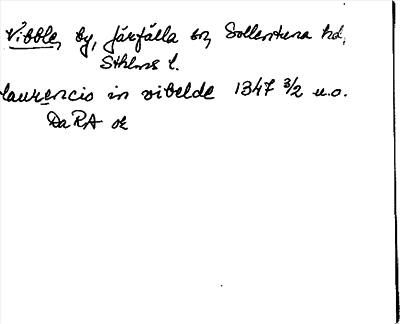 Vibble, by, Järfälla sn, Sollentuna hd,
Sthlms l.
laurencio in vibelde 1347 3/2 u.o.
DaRA or